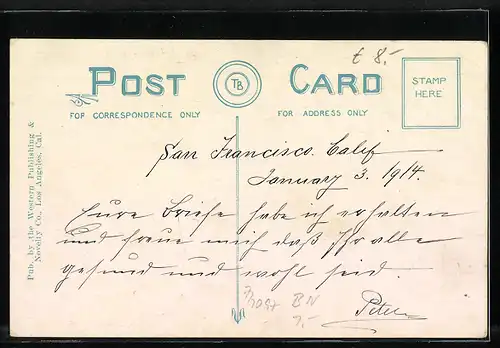 € 8.-
POST CARD
TB
FOR CORRESPONDENCE ONLY
FOR ADDRESS ONLY
STAMP
HERE
Pub. by The Western Publishing &
Novelty Co., Los Angeles, Cal.
San Francisco. Calif
January 3. 1914.
Eure Briefe habe ich erhalten
und freue mich daß Ihr alle
gesund und wohl seid.
Peter
BN